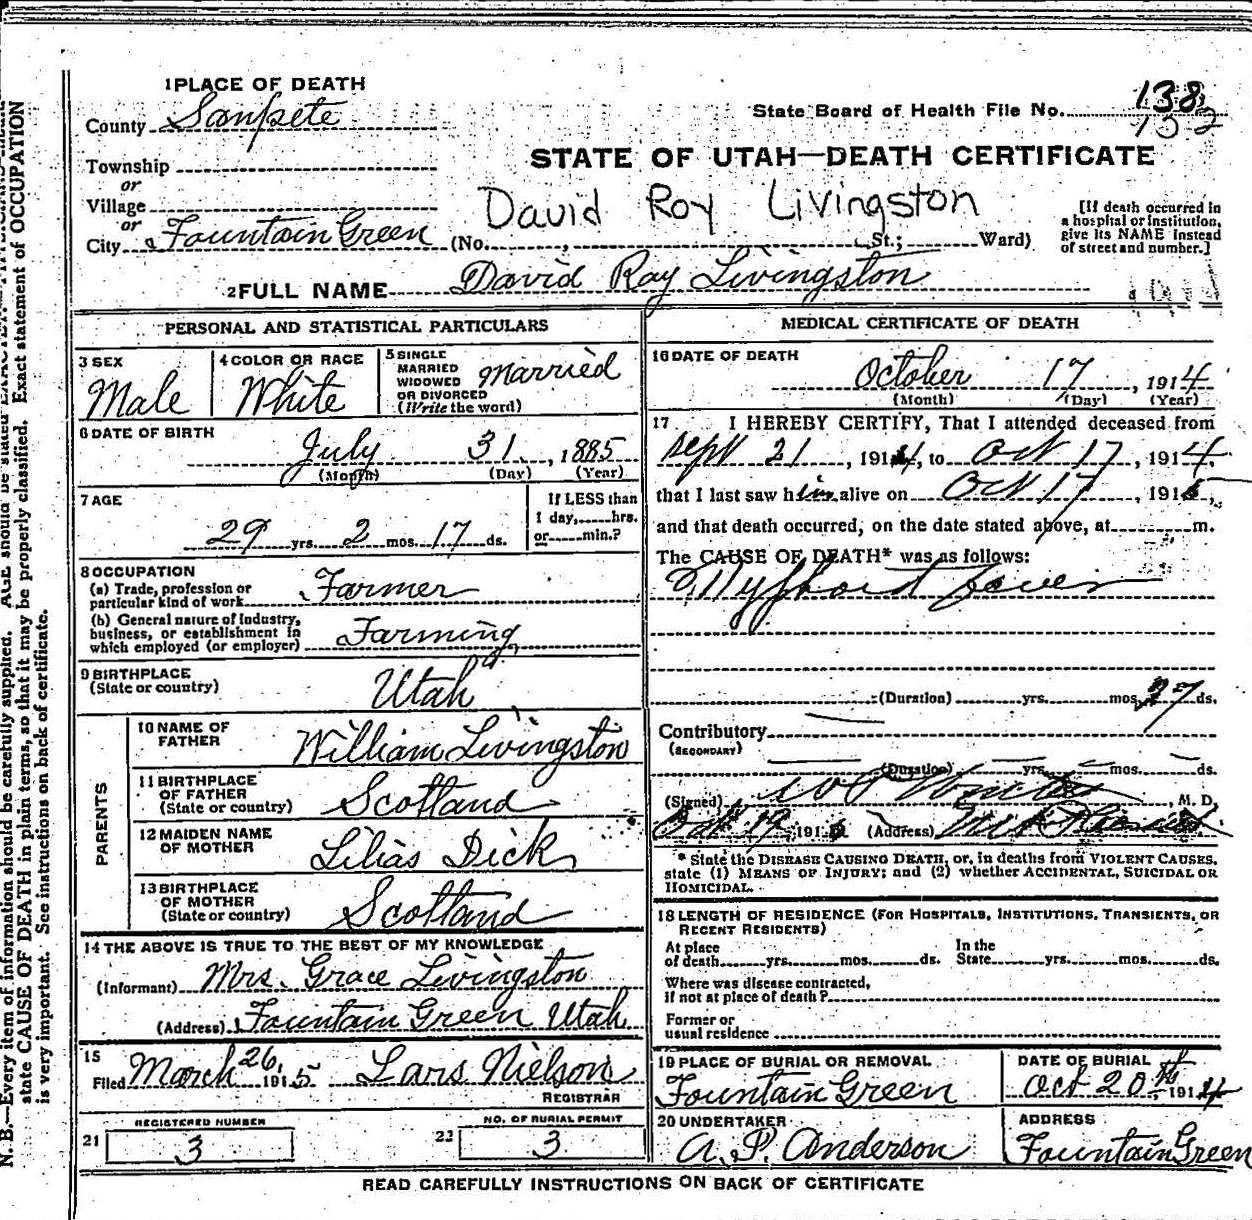 1 PLACE OF DEATH
County Sanpete
State Board of Health File No. 138
Township
or
Village
or
City Fountain Green (No. , St.; Ward)
STATE OF UTAH—DEATH CERTIFICATE
David Roy Livingston
[If death occurred in
a hospital or institution,
give its NAME instead
of street and number.]
2 FULL NAME David Ray Livingston
PERSONAL AND STATISTICAL PARTICULARS
3 SEX
Male
4 COLOR OR RACE
White
5 SINGLE
MARRIED
WIDOWED
OR DIVORCED
(Write the word)
Married
6 DATE OF BIRTH
July 31, 1885
(Month) (Day) (Year)
7 AGE
29 yrs. 2 mos. 17 ds.
If LESS than
1 day, hrs.
or min.?
8 OCCUPATION
(a) Trade, profession or
particular kind of work Farmer
(b) General nature of industry,
business, or establishment in
which employed (or employer) Farming
9 BIRTHPLACE
(State or country)
Utah
PARENTS
10 NAME OF
FATHER
William Livingston
11 BIRTHPLACE
OF FATHER
(State or country)
Scotland
12 MAIDEN NAME
OF MOTHER
Lilias Dick
13 BIRTHPLACE
OF MOTHER
(State or country)
Scotland
14 THE ABOVE IS TRUE TO THE BEST OF MY KNOWLEDGE
(Informant) Mrs. Grace Livingston
(Address) Fountain Green Utah
15
Filed March 26, 1915 Lars Nielson
REGISTRAR
21 REGISTERED NUMBER
3
22 NO. OF BURIAL PERMIT
3
MEDICAL CERTIFICATE OF DEATH
16 DATE OF DEATH
October 17, 1914
(Month) (Day) (Year)
17 I HEREBY CERTIFY, That I attended deceased from
Sept 21, 1914, to Oct 17, 1914,
that I last saw him alive on Oct 17, 1915,
and that death occurred, on the date stated above, at m.
The CAUSE OF DEATH* was as follows:
Typhoid fever
(Duration) yrs. mos. 27 ds.
Contributory
(SECONDARY)
(Duration) yrs. mos. ds.
(Signed) , M. D.
Oct 19, 191 (Address)
* State the DISEASE CAUSING DEATH, or, in deaths from VIOLENT CAUSES,
state (1) MEANS OF INJURY; and (2) whether ACCIDENTAL, SUICIDAL OR
HOMICIDAL.
18 LENGTH OF RESIDENCE (FOR HOSPITALS, INSTITUTIONS, TRANSIENTS, OR
RECENT RESIDENTS)
At place
of death yrs. mos. ds.
In the
State yrs. mos. ds.
Where was disease contracted,
if not at place of death?
Former or
usual residence
19 PLACE OF BURIAL OR REMOVAL
Fountain Green
DATE OF BURIAL
Oct 20th 1914
20 UNDERTAKER
A. P. Anderson
ADDRESS
Fountain Green
READ CAREFULLY INSTRUCTIONS ON BACK OF CERTIFICATE
N. B.—Every item of information should be carefully supplied. AGE should be stated
state CAUSE OF DEATH in plain terms, so that it may be properly classified. Exact statement of OCCUPATION
is very important. See instructions on back of certificate.